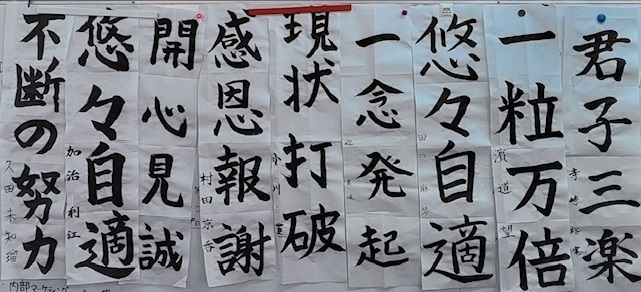 君子三楽
一粒万倍
濵道 望
悠々自適
一念発起
現状打破
感恩報謝
村田 京香
開心見誠
悠々自適
加治 利江
不断の努力
久田 未知瑠
内部マーケティング